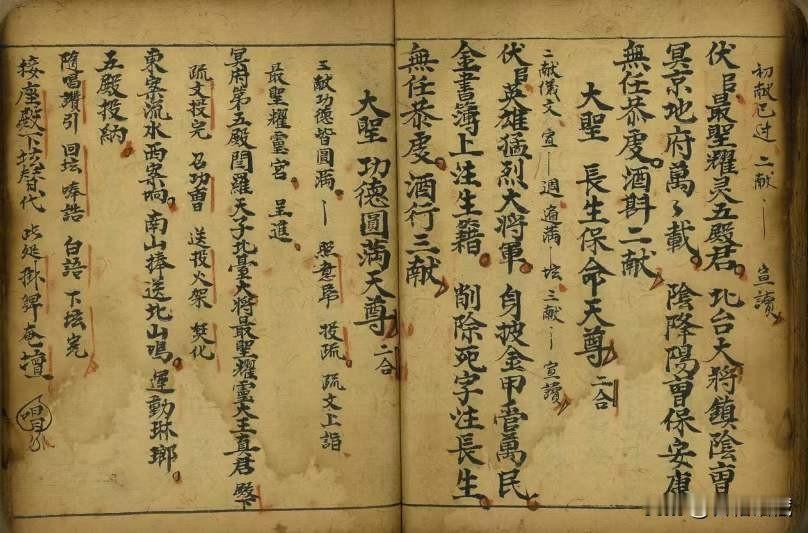 初献已过 二献 宣讀
伏㠯最聖耀灵五殿君。北台大將鎮陰曹
冥京地府萬々載。陰降陽曹保安康
無任恭虔。酒斟二献
大聖 長生保命天尊 二合
二献儀文 宣 週遍滿 坛三献 宣讀
伏㠯英雄猛烈大將軍。身披金甲管萬民
金書簿上注生籍 削除死字注長生
無任恭虔。酒行三献
大聖 功德圓満天尊 二合
三献功德皆圓满 投疏 疏文上詣
最聖耀靈宮 呈進
冥府第五殿閻羅天子北臺大將最聖耀靈大王真君 殿下
疏文投完 召功曹 送投火架 焚化
東案流水西案响。南山捧送北山鳴。運動琳瑯
五殿投納
隨唱讚引 回坛 奉誥 白語 下坛完
接座殿下坛